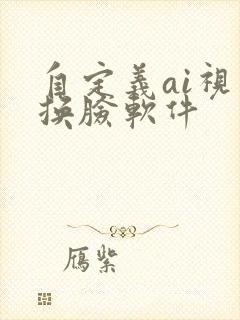 自定義ai視
換臉軟件
鴈紫